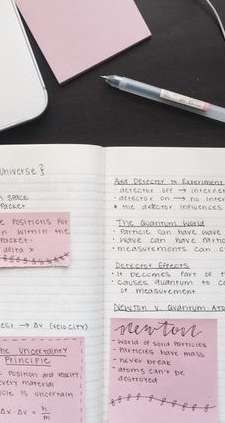 Universe?
n space
packet
e positions for
n within the
packet
delta x
→ Δv (velocity)
The Uncertainty
Principle
position and velocity
every material
cle is uncertain
Δx Δv = h/m
Add Detector to Experiment
detector off → interfe
detector on → no inter
the detector influences
The Quantum World
Particle can have wave
Wave can have partic
measurements can c
Detector Effects
It becomes part of t
causes quantum to co
of measurement
Newton v. Quantum Ato
newton
World of solid particles
Particles have mass
never break
atoms can't be
destroyed